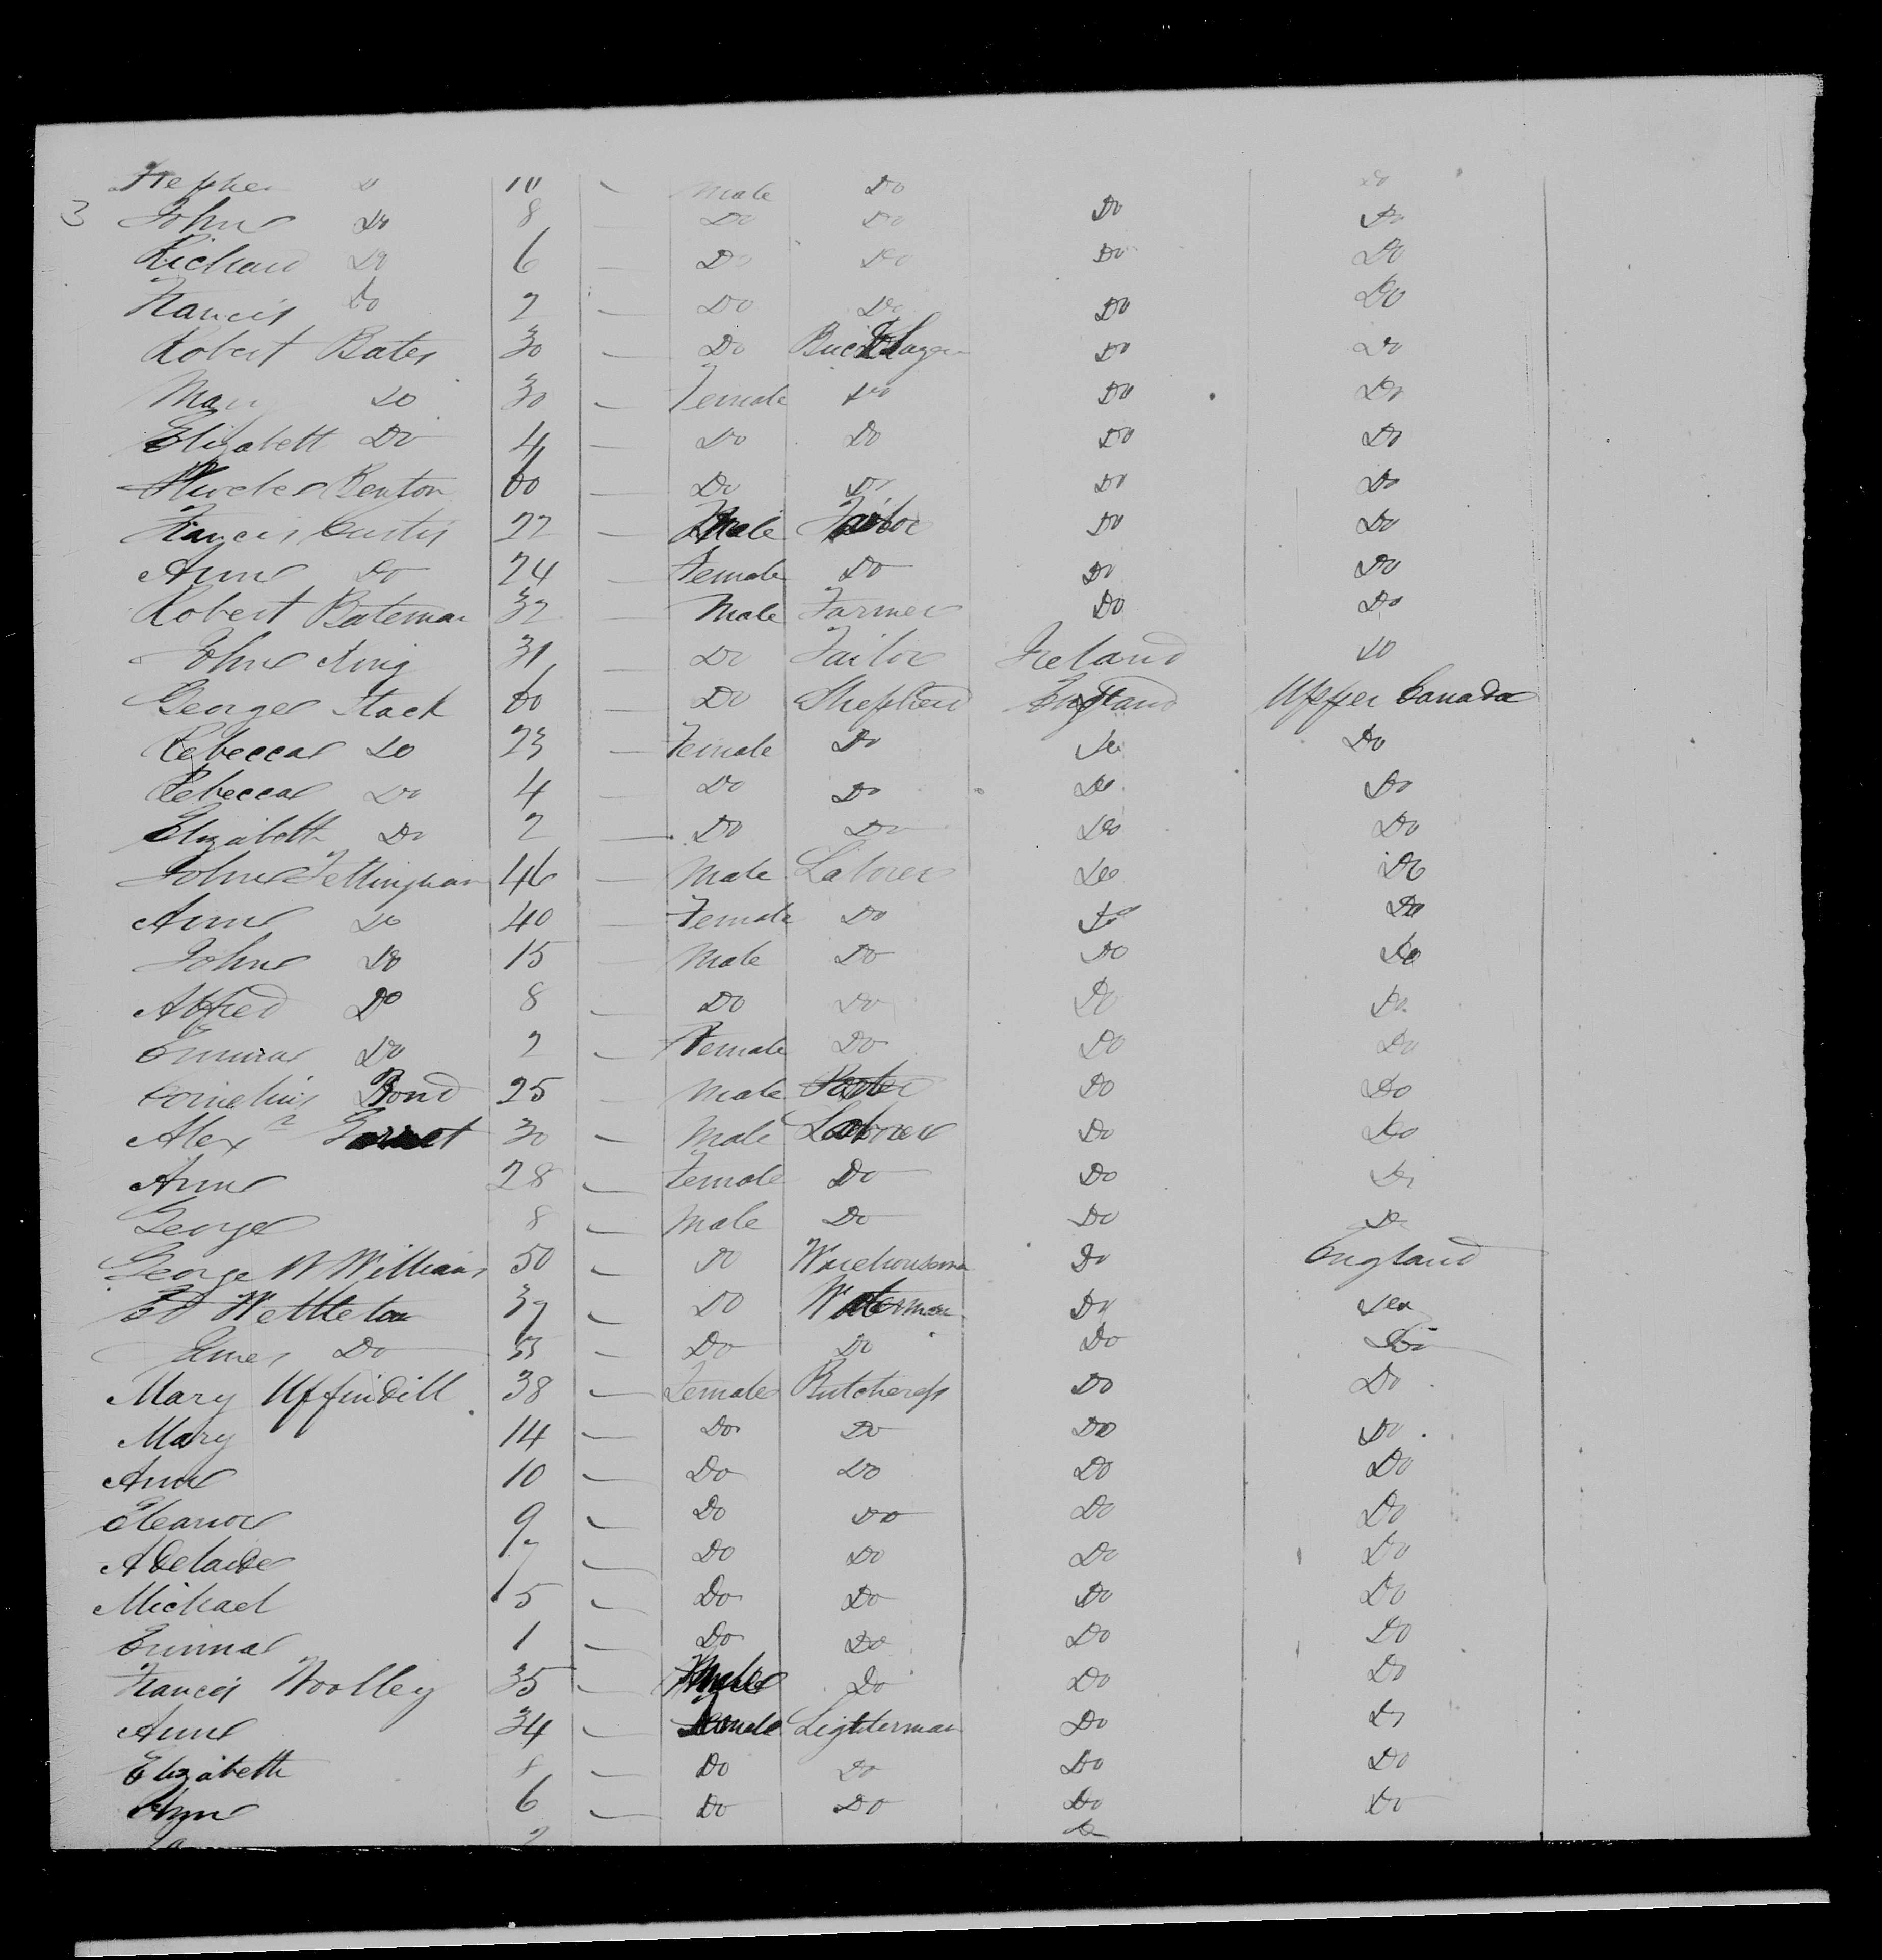 Stephen Do 10 Male Do Do
3 John Do 8 Do Do Do Do
Richard Do 6 Do Do Do Do
Francis Do 2 Do Do Do Do
Robert Bates 30 Do Do Do
Mary Do 30 Female Do Do Do
Elizabeth Do 4 Do Do Do Do
Benton 60 Do Do Do Do
Francis Curtis 22 Male Tailor Do Do
Anne Do 24 Female Do Do Do
Robert Bateman 32 Male Farmer Do Do
John King 31 Do Tailor Ireland Do
George Stack 60 Do Shepherd England Upper Canada
Rebecca Do 23 Female Do Do Do
Rebecca Do 4 Do Do Do Do
Elizabeth Do 2 Do Do Do Do
John Fettingham 46 Male Laborer Do Do
Anne Do 40 Female Do Do Do
John Do 15 Male Do Do Do
Alfred Do 8 Do Do Do Do
Emma Do 2 Female Do Do Do
Cornelius Bond 25 Male Do Do
Alexr 30 Male Laborer Do Do
Anne 28 Female Do Do Do
George 8 Male Do Do Do
George W Williams 50 Do Warehousman Do England
Ed Wettleton 37 Do Waterman Do Do
Do Do Do Do
Mary Uffindill 38 Female Butcheress Do Do
Mary 14 Do Do Do Do
Anne 10 Do Do Do Do
Eleanor 9 Do Do Do Do
Adelaide 7 Do Do Do Do
Michael 5 Do Do Do Do
Emma 1 Do Do Do Do
Francis Woolley 35 Male Do Do Do
Anne 34 Female Lighterman Do Do
Elizabeth 8 Do Do Do Do
Anne 6 Do Do Do Do
2 Do